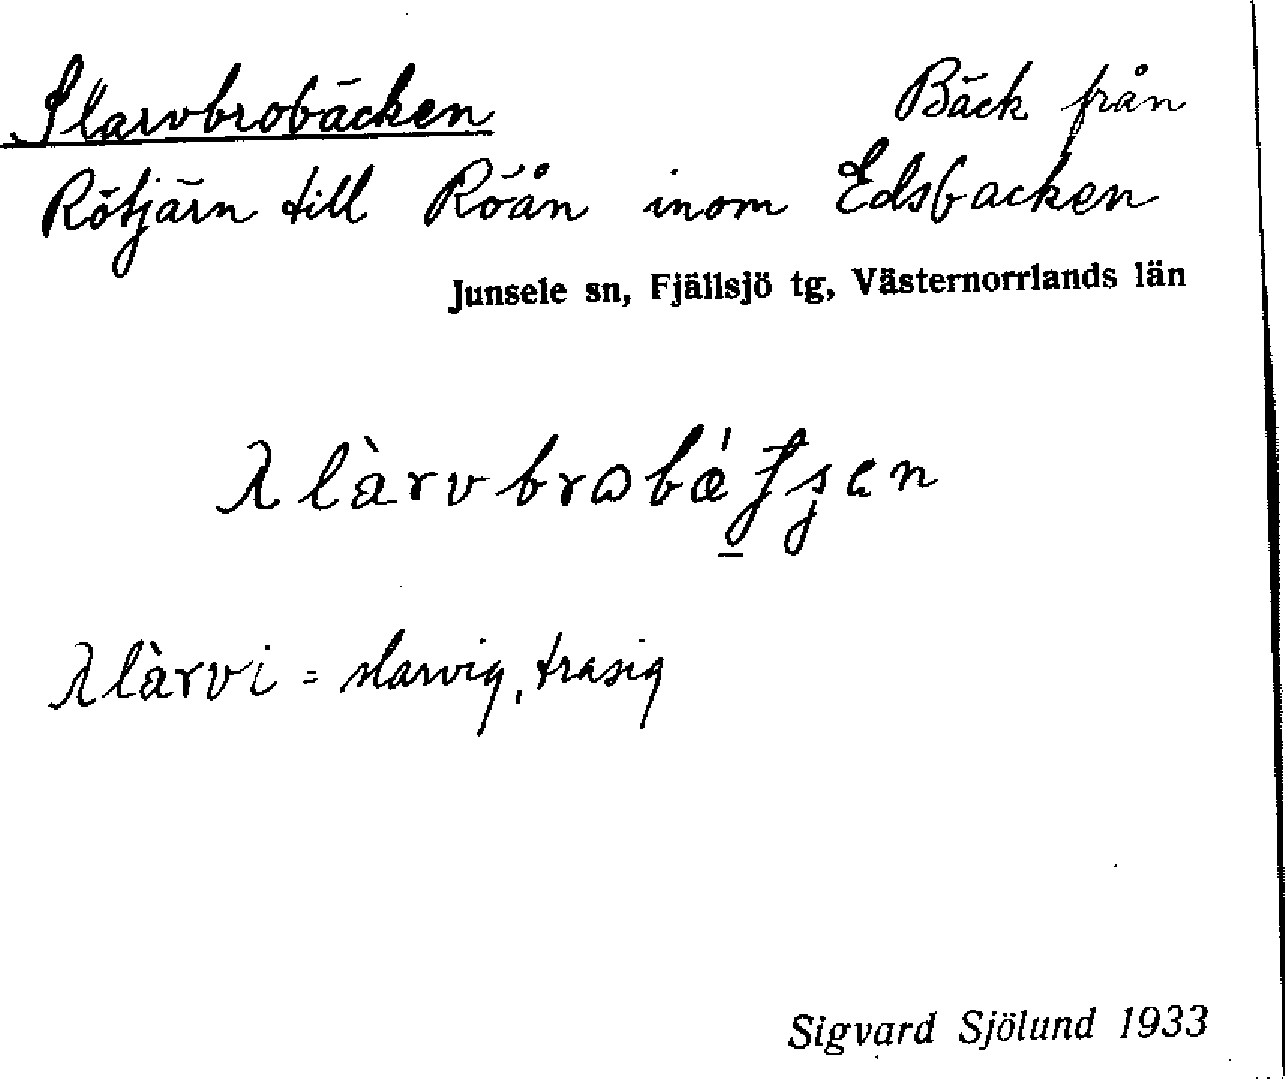 Slarvbrobäcken Bäck från
Rötjärn till Röån inom Edsbacken
Junsele sn, Fjällsjö tg, Västernorrlands län
= slarvig, trasig
Sigvard Sjölund 1933